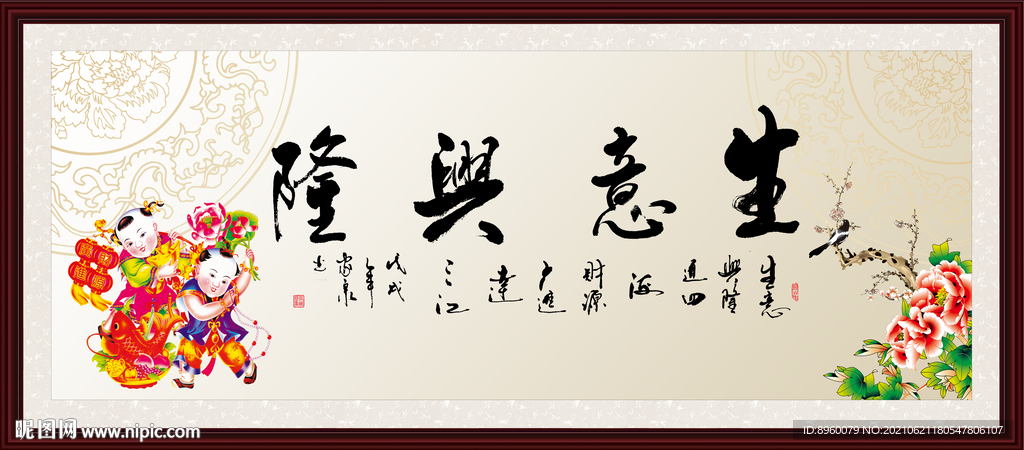 生意興隆
生意
興隆
通四
海
財源
广進
達
三江
戊戌
昵图网 www.nipic.com
ID:8960079 NO:20210621180547806107